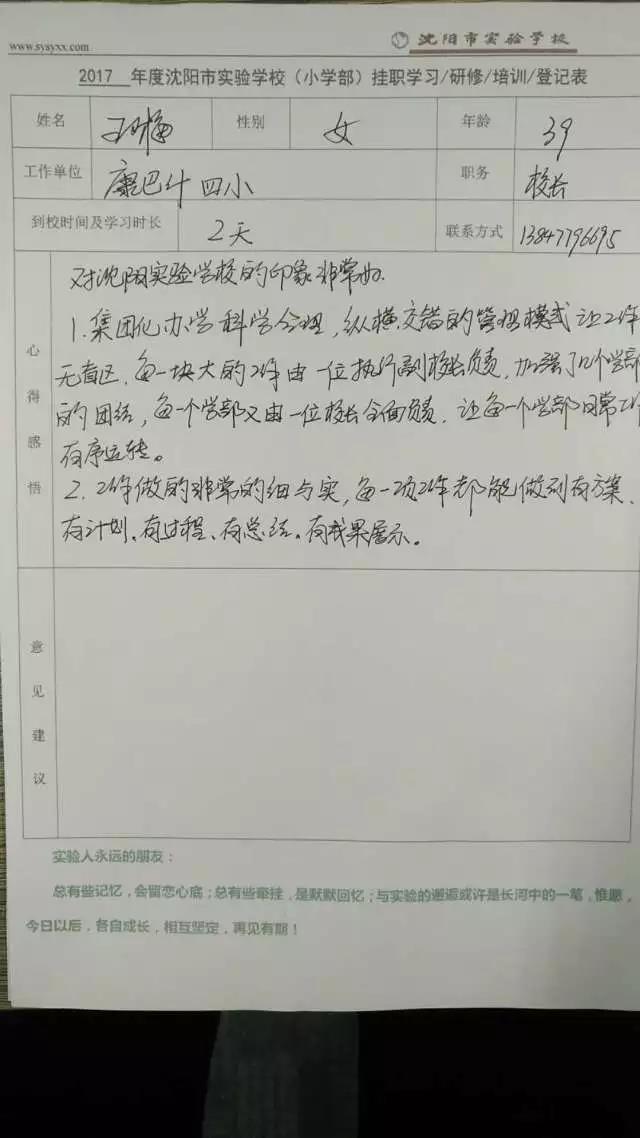 www.sysyxx.com
沈阳市实验学校
2017 年度沈阳市实验学校（小学部）挂职学习/研修/培训/登记表
姓名 性别 女 年龄 39
工作单位 康巴什四小 职务 校长
到校时间及学习时长 2天 联系方式 13847796695
心得感悟
对沈阳实验学校的印象非常好.
1.集团化办学科学合理，纵横交错的管理模式让工作
无盲区，每一块大的工作由一位执行副校长负责，加强了几个学部
的团结，每一个学部又由一位校长全面负责．让每一个学部日常工作
有序运转。
2.工作做的非常的细与实，每一项工作都能做到有方案、
有计划、有过程、有总结、有成果展示。
意见建议
实验人永远的朋友：
总有些记忆，会留恋心底；总有些牵挂，是默默回忆；与实验的邂逅或许是长河中的一笔，惟愿，
今日以后，各自成长，相互坚定，再见有期！